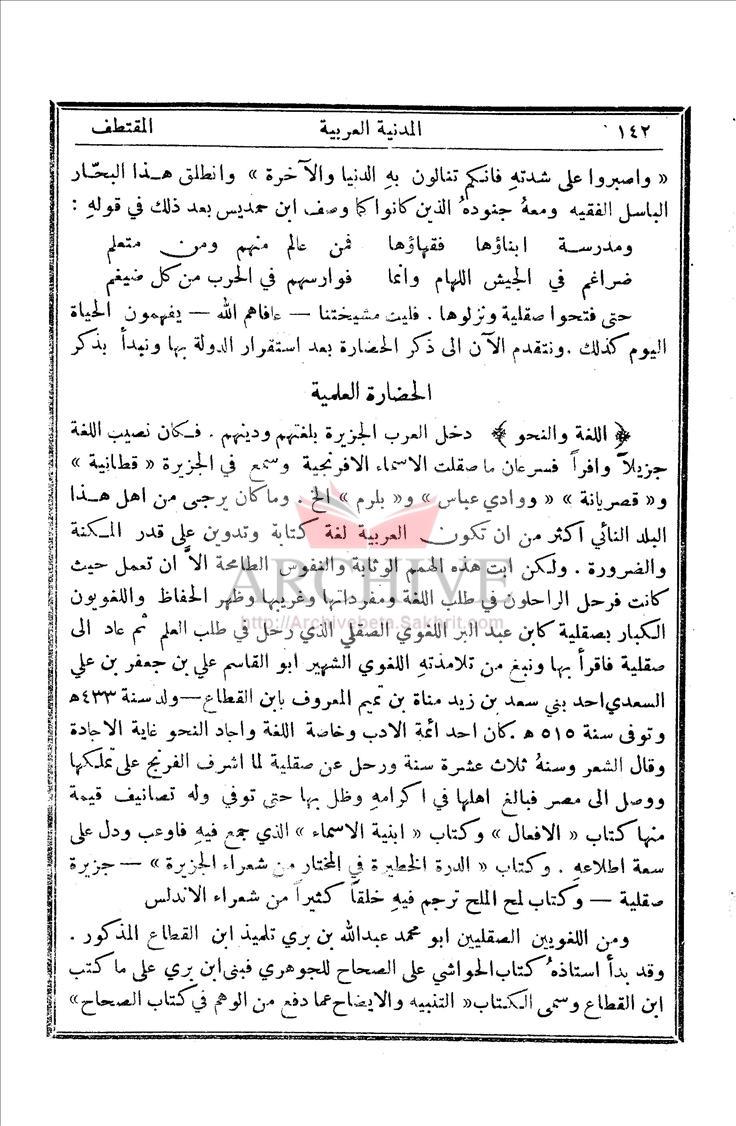 ١٤٢ المدنية العربية المقتطف
« واصبروا على شدتهِ فانكم تنالون بهِ الدنيا والآخرة » وانطلق هـذا البحّار
الباسل الفقيه ومعهُ جنودهُ الذين كانوا كما وصف ابن حمديس بعد ذلك في قولهِ :
ومدرســة ابناؤها فقهاؤها فمن عالم منهم ومن متعلم
ضراغم في الجيش اللهام وانما فوارسهم في الحرب من كل ضيغم
حتى فتحوا صقلية ونزلوها . فليت مشيختنا — عافاهم الله — يفهمون الحياة
اليوم كذلك . ونتقدم الآن الى ذكر الحضارة بعد استقرار الدولة بها ونبدأ بذكر
الحضارة العلمية
﴿ اللغة والنحو ﴾ دخل العرب الجزيرة بلغتهم ودينهم . فـكان نصيب اللغة
جزيلاً وافراً فسرعان ما صقلت الاسماء الافرنجية وسمع في الجزيرة « قطانية »
و« قصريانة » « ووادي عباس » و« بلرم » الخ . وما كان يرجى من اهل هـذا
البلد النائي اكثر من ان تكون العربية لغة كتابة وتدوين على قدر المـكنة
والضرورة . ولـكن ابت هذه الهمم الوثابة والنفوس الطامحة الاَّ ان تعمل حيث
كانت فرحل الراحلون في طلب اللغة ومفرداتها وغريبها وظهر الحفاظ واللغويون
ARCHIVE
http://Archivebeta.Sakhrit.com
الـكبار بصقلية كابن عبد البر اللغوي الصقلي الذي رحل في طلب العلم ثم عاد الى
صقلية فاقرأ بها ونبغ من تلامذتهِ اللغوي الشهير ابو القاسم علي بن جعفر بن علي
السعدي احد بني سعد بن زيد مناة بن تميم المعروف بابن القطاع — ولد سنة ٤٣٣ هـ
وتوفى سنة ٥١٥ ه . كان احد ائمة الادب وخاصة اللغة واجاد النحو غاية الاجادة
وقال الشعر وسنهُ ثلاث عشرة سنة ورحل عن صقلية لما اشرف الفرنج على تملكها
ووصل الى مصر فبالغ اهلها في اكرامهِ وظل بها حتى توفي وله تصانيف قيمة
منها كتاب « الافعال » وكتاب « ابنية الاسماء » الذي جمع فيهِ فاوعب ودل على
سعة اطلاعهِ . وكتاب « الدرة الخطيرة في المختار من شعراء الجزيرة » — جزيرة
صقلية — وكتاب لمح الملح ترجم فيهِ خلقاً كثيراً من شعراء الاندلس
ومن اللغويين الصقليين ابو محمد عبدالله بن بري تلميذ ابن القطاع المذكور .
وقد بدأ استاذهُ كتاب الحواشي على الصحاح للجوهري فبنى ابن بري على ما كتب
ابن القطاع وسمى الـكتاب « التنبيه والايضاح عما دفع من الوهم في كتاب الصحاح »